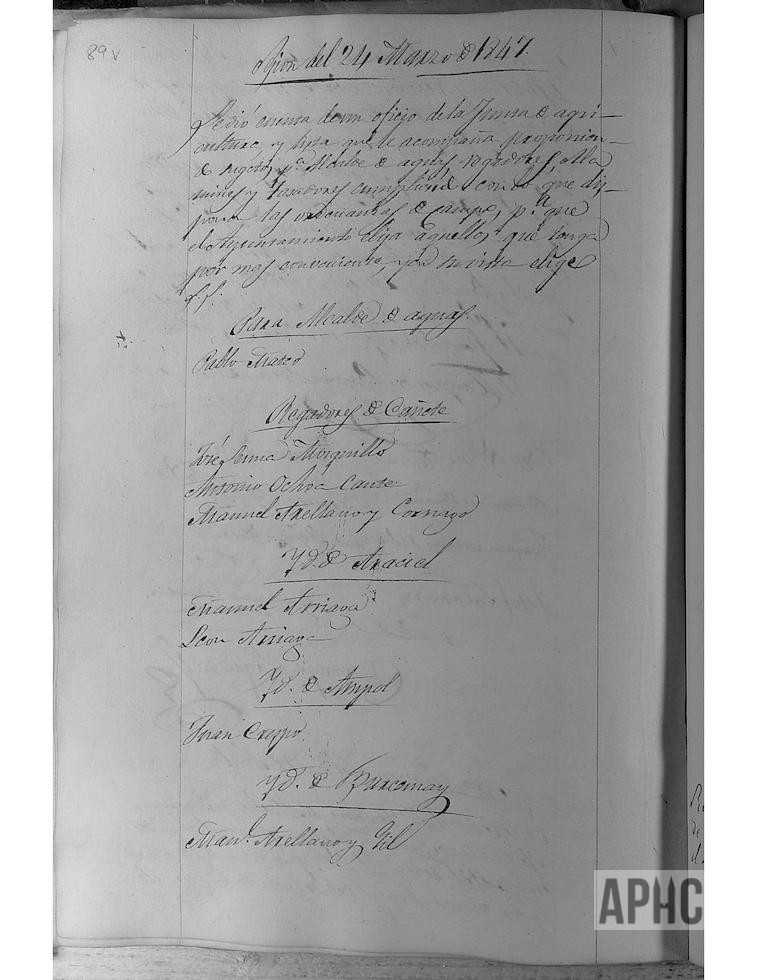 89v
Sesion del 24 Marzo de 1847.
Se dió cuenta de un oficio de la Junta de agri-
cultura y lista que le acompaña proponien-
do sugetos p.ª Alcalde de aguas, regadores, Ala
mines y tasadores cumpliendo con lo que dis-
ponen las ordenanzas de campo, p.ª que
el Ayuntamiento elija aquellos que tenga
por mas conveniente, y en su vista elige
á f.
Para Alcalde de aguas.
Pablo Marco
Regadores de Cañete
José Morquillo
Antonio Ochoa Cante
Manuel Arellano y Cornago
Yd. de Araciel
Manuel Arriaga
Leon Arriaga
Yd. de Ampol
Juan Crespo
Yd. de Burcemay
Man.l Arellano y Gil
APHC